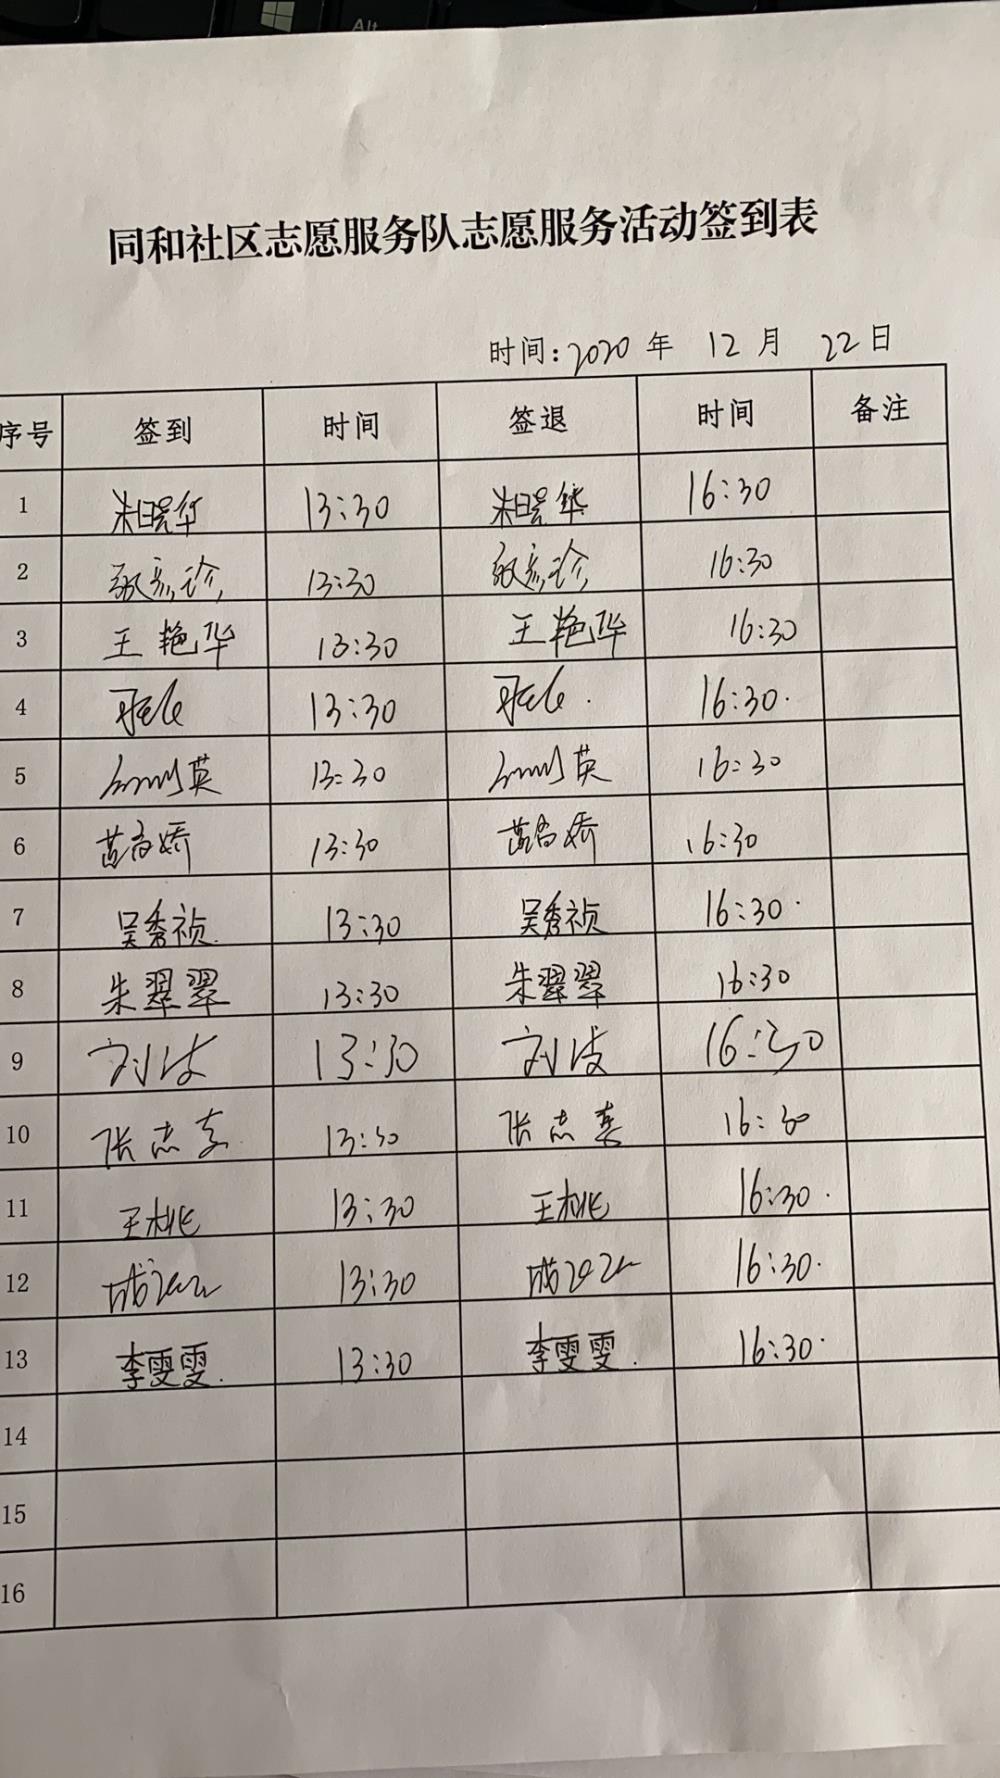 Alt
同和社区志愿服务队志愿服务活动签到表
时间:2020 年 12 月 22 日
序号 签到 时间 签退 时间 备注
1 朱晓华 13:30 朱晓华 16:30
2 13:30 16:30
3 王艳华 13:30 王艳华 16:30
4 13:30 16:30.
5 英 13:30 英 16:30
6 娇 13:30 娇 16:30
7 吴秀祯. 13:30 吴秀祯 16:30.
8 朱翠翠 13:30 朱翠翠 16:30
9 刘波 13:30 刘波 16:30
10 张志 13:30 张志 16:30
11 王桃 13:30 王桃 16:30.
12 13:30 16:30.
13 李雯雯. 13:30 李雯雯. 16:30.
14
15
16